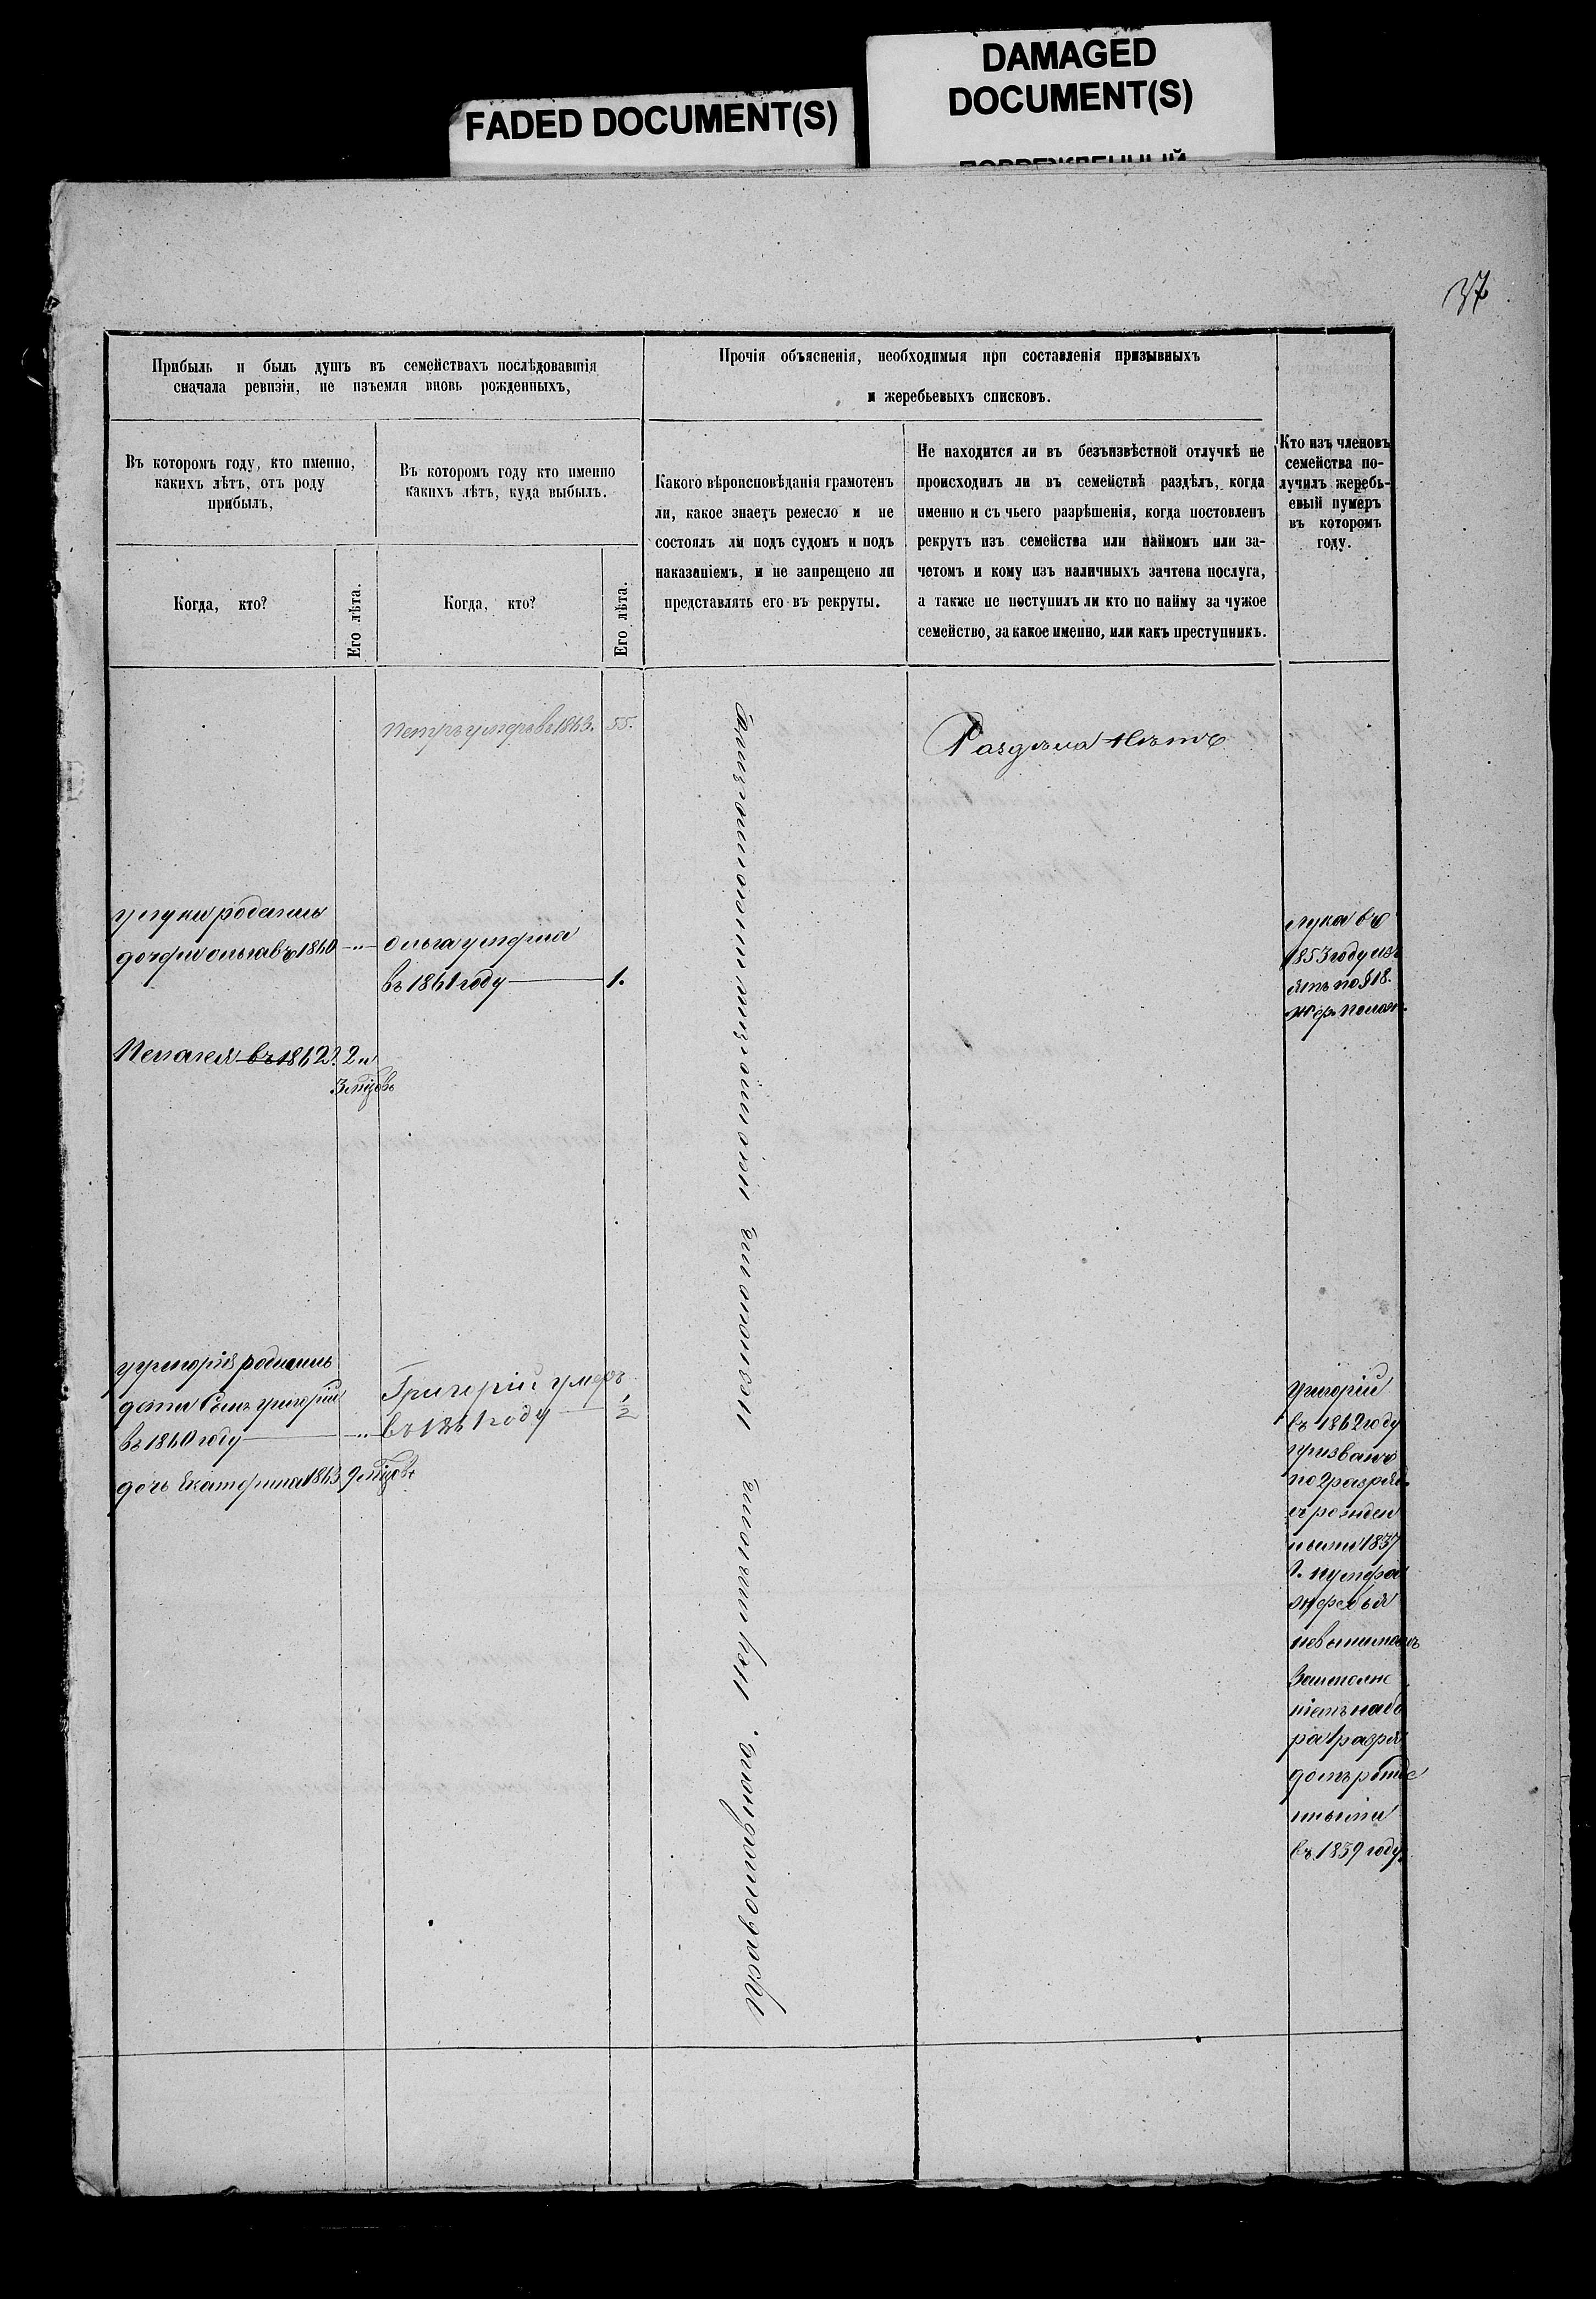 FADED DOCUMENT(S)
DAMAGED
DOCUMENT(S)
37
Прибыль и быль душъ въ семействахъ послѣдовавшія
сначала ревизіи, не изъемля вновь рожденныхъ,
Прочія объясненія, необходимыя при составленія призывныхъ
и жеребьевыхъ списковъ.
Въ которомъ году, кто именно,
какихъ лѣтъ, отъ роду
прибылъ,
Въ которомъ году кто именно
какихъ лѣтъ, куда выбылъ.
Какого вѣроисповѣданія грамотенъ
ли, какое знаетъ ремесло и не
состоялъ ли подъ судомъ и подъ
наказаніемъ, и не запрещено ли
представлять его въ рекруты.
Не находится ли въ безъизвѣстной отлучкѣ не
происходилъ ли въ семействѣ раздѣлъ, когда
именно и съ чьего разрѣшенія, когда постовленъ
рекрутъ изъ семейства или наймомъ или за-
четомъ и кому изъ наличныхъ зачтена послуга,
а также не поступилъ ли кто по найму за чужое
семейство, за какое именно, или какъ преступникъ.
Кто изъ членовъ
семейства по-
лучилъ жеребь-
евый нумеръ
въ которомъ
году.
Когда, кто?
Его лѣта.
Когда, кто?
Его лѣта.
Петръ умеръ въ 1863. 55.
Раздѣла нѣтъ
у луки родились
дочери ольга въ 1860 —"—
ольга умерла
въ 1861 году — 1.
Пелагея въ 1862 2 и
3 мцовъ
лука въ
1853 году изъ
ятъ по § 18.
жер. полож.
у григорія родились
дѣти Сынъ григорій
въ 1860 году —"—
дочь Екатерина 1863 9 мцовъ
Григорій умеръ
въ 1861 году — 1/2
григорій
въ 1862 году
призванъ
по 2 разряд.
съ рожден
ными 1837
г. нумера
жеребья
невынималъ
за
ніемъ набо
ра 1 разря
домъ рожде
нными
въ 1839 году.
православнаго.